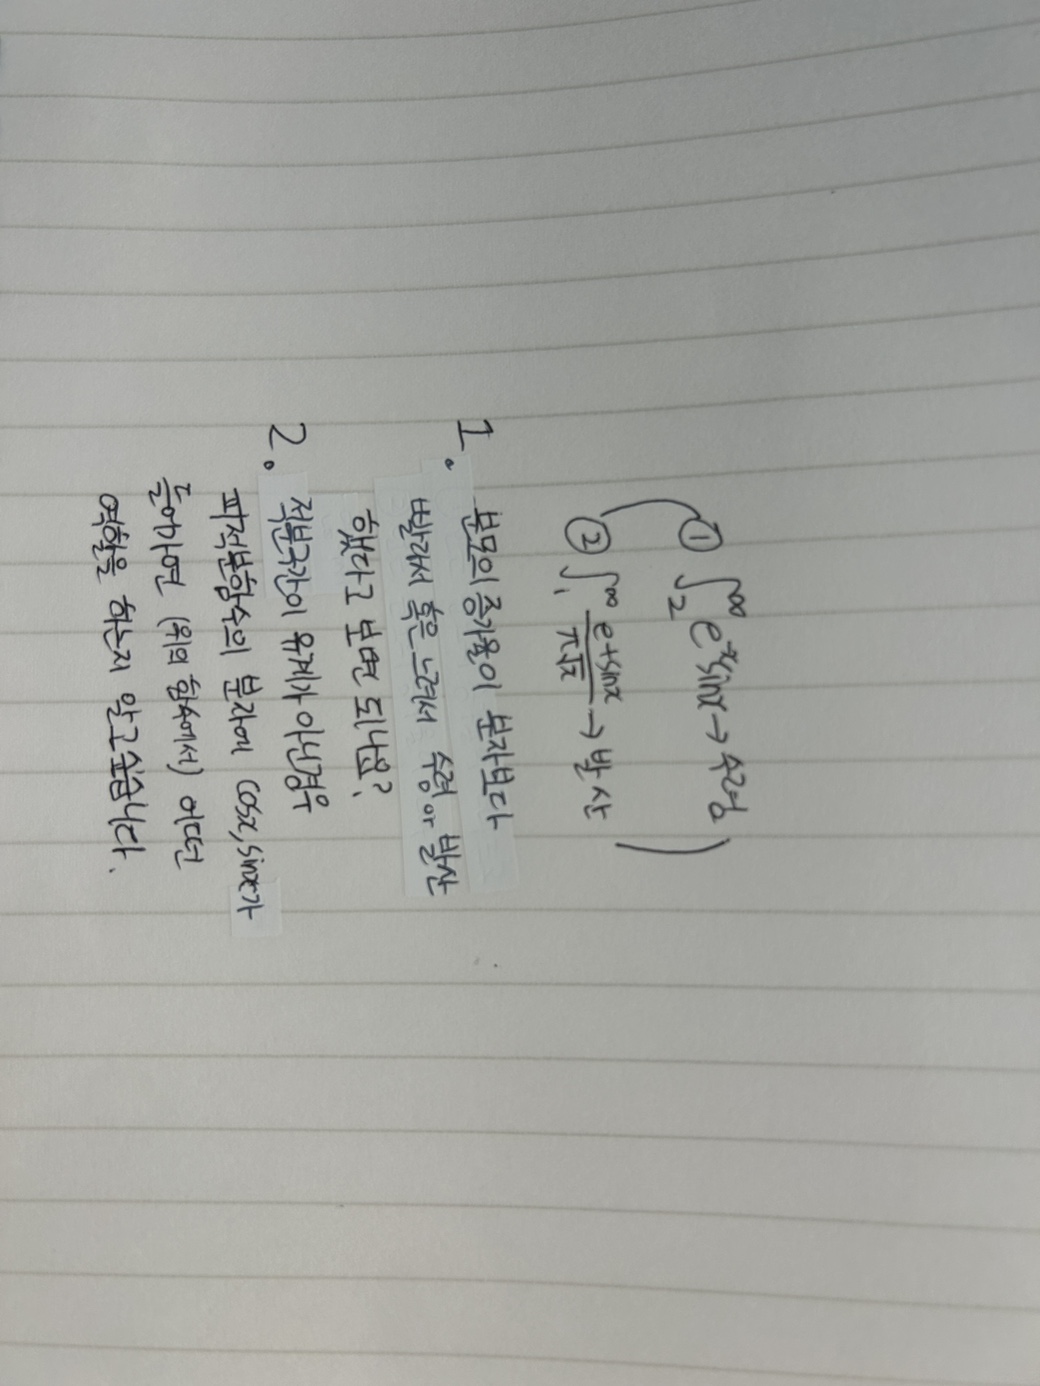 ① ∫₂^∞ e⁻ˣsinx → 수렴
② ∫₁^∞ (e+sinx)/(π√x) → 발산
1. 분모의 증가율이 분자보다
빨라서 혹은 느려서 수렴 or 발산
했다고 보면 되나요?
2. 적분구간이 유계가 아닌경우
피적분함수의 분자에 cosx, sinx가
들어가면 (위의 함수에서) 어떤
역할을 하는지 알고싶습니다.